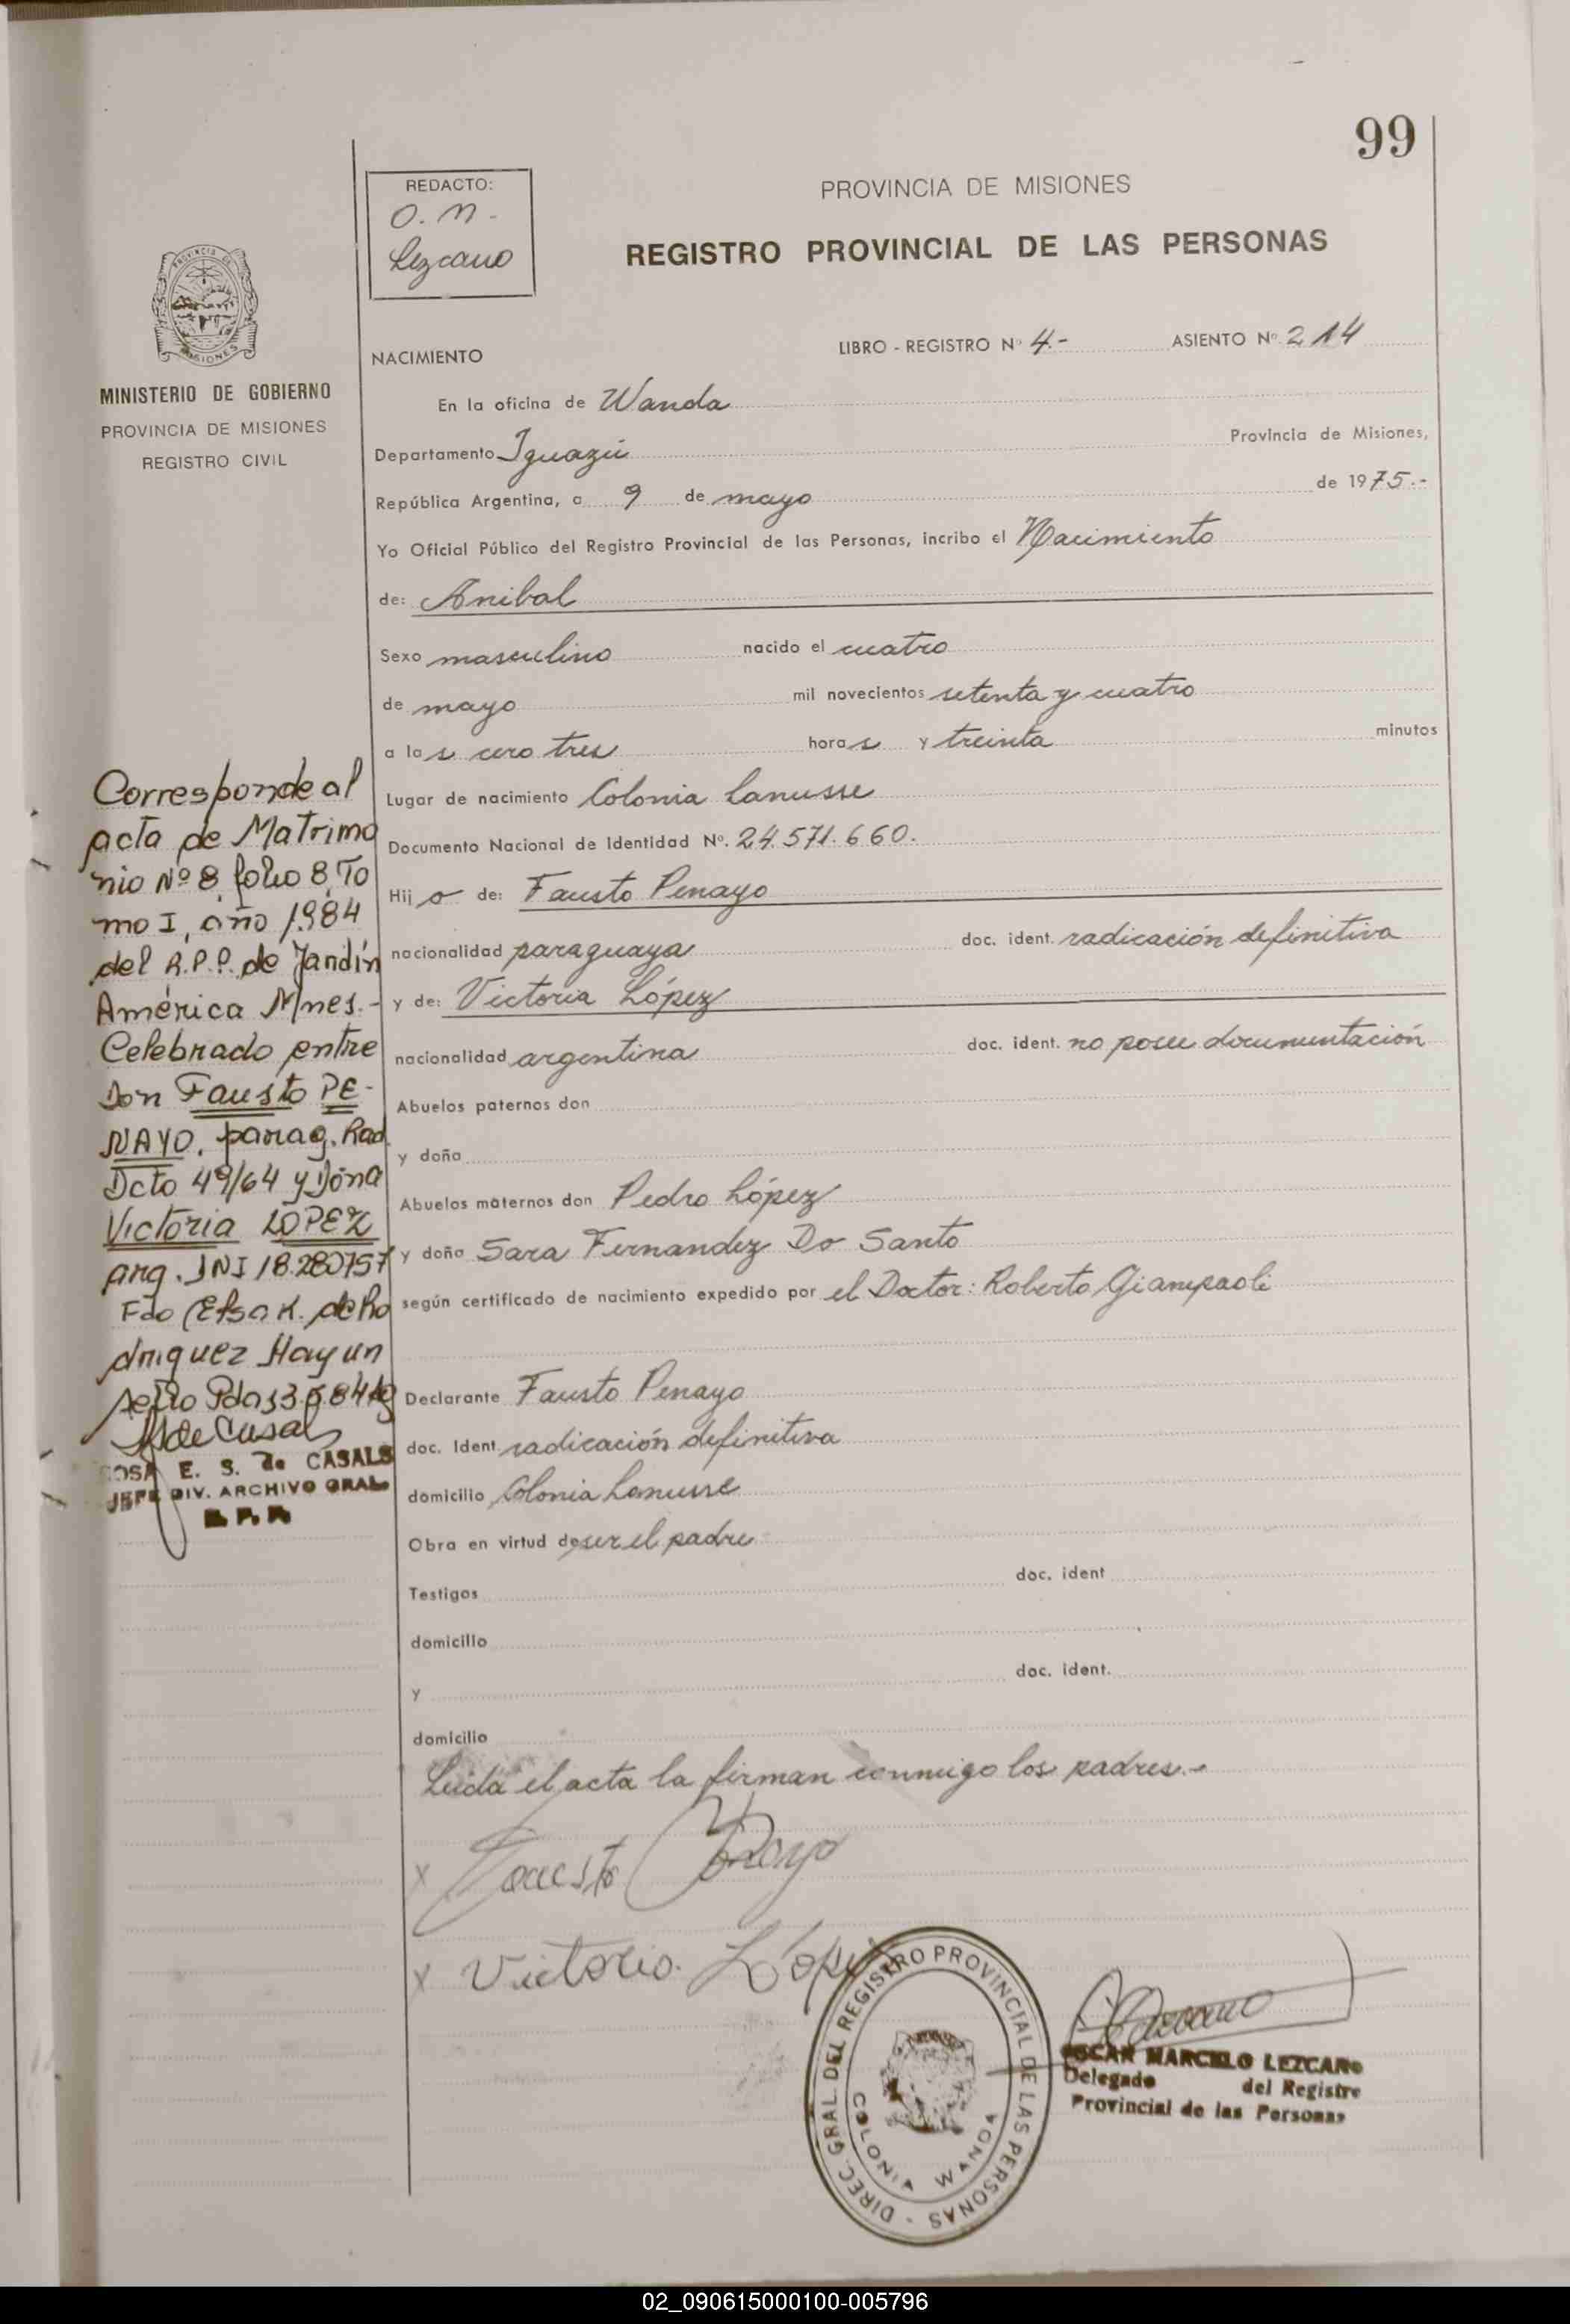 99
REDACTO:
O. M.
Lezcano
PROVINCIA DE MISIONES
REGISTRO PROVINCIAL DE LAS PERSONAS
PROVINCIA DE
MISIONES
MINISTERIO DE GOBIERNO
PROVINCIA DE MISIONES
REGISTRO CIVIL
NACIMIENTO
LIBRO - REGISTRO Nº 4.- ASIENTO Nº 214
En la oficina de Wanda
Departamento Iguazú Provincia de Misiones,
República Argentina, a 9 de mayo de 1975.-
Yo Oficial Público del Registro Provincial de las Personas, incribo el Nacimiento
de: Anibal
Sexo masculino nacido el cuatro
de mayo mil novecientos setenta y cuatro
a las cero tres horas y treinta minutos
Lugar de nacimiento Colonia Lanusse
Documento Nacional de Identidad Nº. 24.571.660.
Hijo de: Fausto Penayo
nacionalidad paraguaya doc. ident. radicación definitiva
y de: Victoria López
nacionalidad argentina doc. ident. no posee documentación
Abuelos paternos don
y doña
Abuelos maternos don Pedro López
y doña Sara Fernandez Do Santo
según certificado de nacimiento expedido por el Doctor: Roberto Giampaoli
Declarante Fausto Penayo
doc. Ident. radicación definitiva
domicilio Colonia Lanusse
Obra en virtud de ser el padre
Testigos doc. ident
domicilio
y doc. ident.
domicilio
Leída el acta la firman conmigo los padres.-
x Fausto Penayo
x Victoria López
Corresponde al
acta de Matrimo
nio Nº 8 folio 8, To
mo I, año 1.984
del R.P.P. de Jardín
América Mnes.-
Celebrado entre
Don Fausto PE-
NAYO, parag. Rad.
Dcto 49/64 y Doña
Victoria LOPEZ
arg. DNI 18.280757
Fdo (Elsa K. de Ro
driguez Hay un
sello Pdas
ROSA E. S. de CASALS
JEFE DIV. ARCHIVO GRAL.
R. P. P.
DIREC. GRAL. DEL REGISTRO PROVINCIAL DE LAS PERSONAS -
COLONIA WANDA
OSCAR MARCELO LEZCANO
Delegado del Registro
Provincial de las Personas
02_090615000100-005796